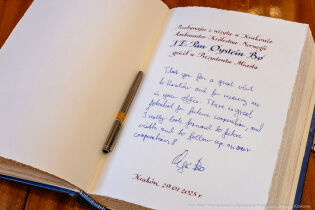 Przebywając z wizytą w Krakowie
Ambasador Królestwa Norwegii
J.E. Pan Øystein Bø
gościł u Prezydenta Miasta
Thank you for a great visit
to Kraków and for receiving me
in your office. There is great
potential for future cooperation, and
I really look forward to future
visits and to follow up on our
cooperation!
Kraków, 29.01.2025 r.